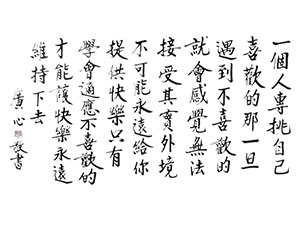 一個人專挑自己
喜歡的那一旦
遇到不喜歡的
就會感覺無法
接受其實外境
不可能永遠給你
提供快樂只有
學會適應不喜歡的
才能讓快樂永遠
維持下去
廣心
敬書